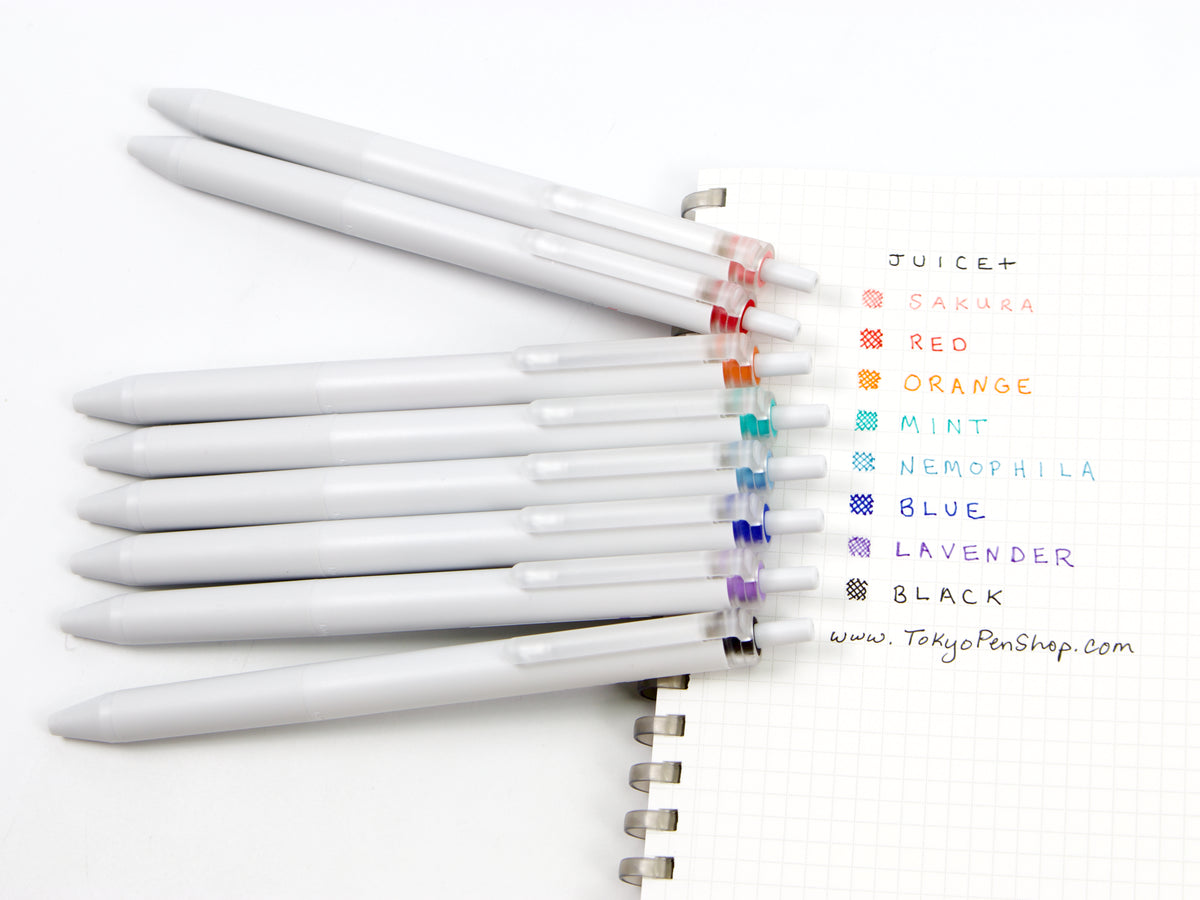 JUICE+
SAKURA
RED
ORANGE
MINT
NEMOPHILA
BLUE
LAVENDER
BLACK
www.TokyoPenShop.com